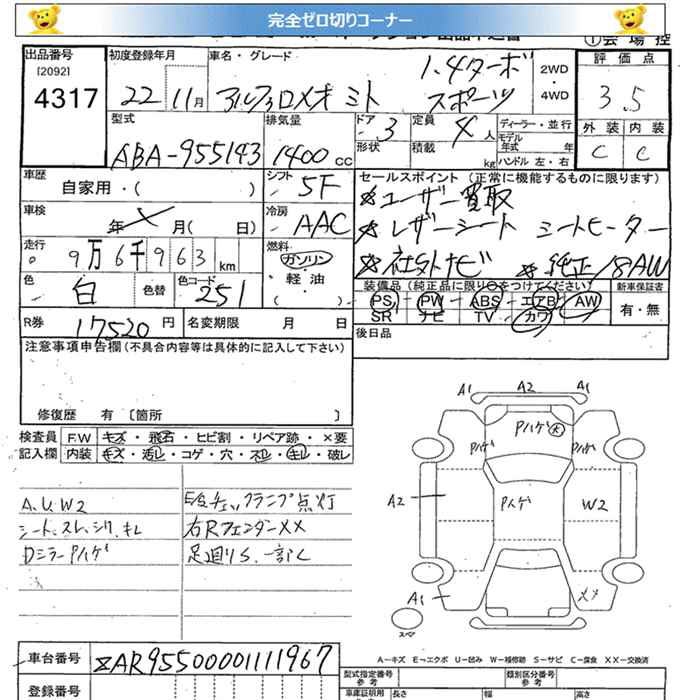 完全ゼロ切りコーナー
出品番号
[2092]
4317
初度登録年月
22 11月
車名・グレード
アルファロメオ ミト
1.4ターボ
スポーツ
2WD
・
4WD
①会場控
評価点
3.5
外装 内装
C C
型式
ABA-955143
排気量
1400 cc
ドア
3
形状
定員
4人
積載
kg
ディーラー・並行
モデル
年式 年
ハンドル 左・右
車歴
自家用・( )
シフト
5F
セールスポイント (正常に機能するものに限ります)
※ユーザー買取
※レザーシート シートヒーター
※社外ナビ ※純正18AW
車検
年 月( 日)
冷房
AAC
走行
9万6千963 km
燃料
ガソリン
・
軽油
( )
色
白
色替
色コード
251
装備品 (純正品に限り○をつけてください)
PS・PW・ABS・エアB・AW
SR ナビ TV カワ
新車保証書
有・無
R券
17520 円
名変期限 月 日
後日品
注意事項申告欄 (不具合内容等は具体的に記入して下さい)
修復歴 有 〔箇所 〕
検査員
記入欄
F.W キズ・飛石・ヒビ割・リペア跡・×要
内装 キズ・汚レ・コゲ・穴・スレ・キレ・破レ
A.U.W2
シート、スレ、シワ、キレ
Dミラー Pハゲ
E/Gチェックランプ点灯
右RフェンダーXX
足廻りS、一部C
A1 A2 A1
Pハゲ
Pハゲ Pハゲ
A2 Pハゲ W2
A1 XX
スペア
A―キズ E―エクボ U―凹み W―補修跡 S―サビ C―腐食 XX―交換済
車台番号
※ZAR95500001111967
登録番号
型式指定番号
参考
類別区分番号
参考
車庫証明用
長さ 幅 高さ